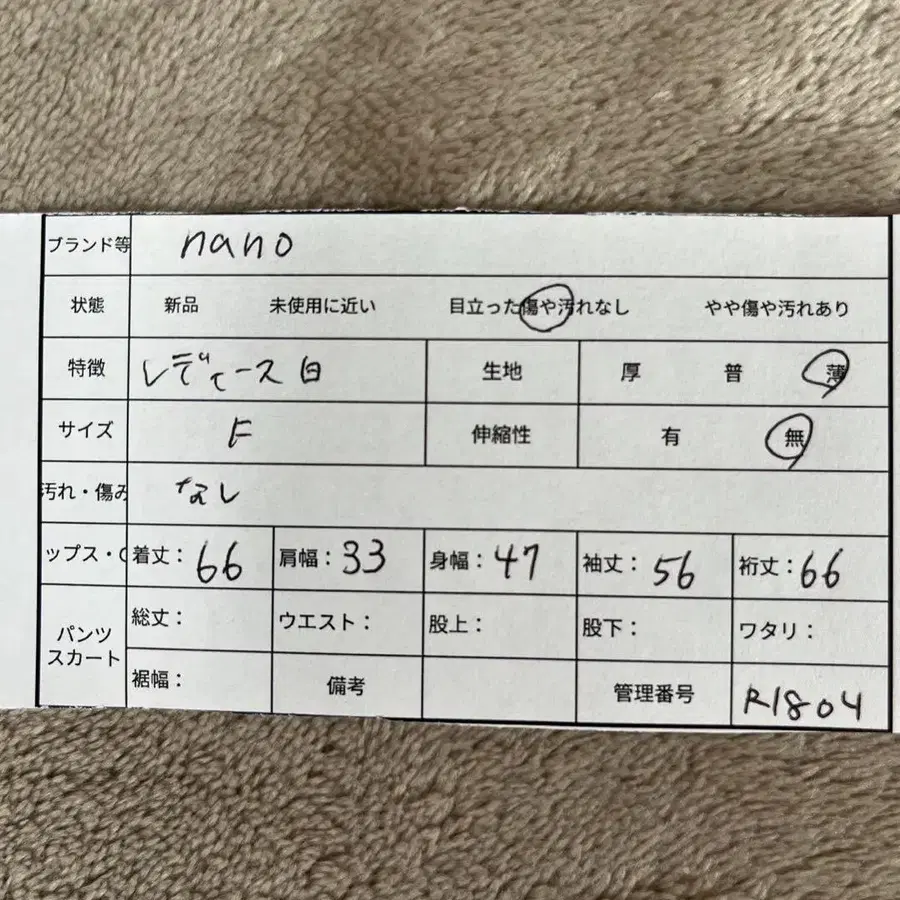 ブランド等 nano
状態 新品 未使用に近い 目立った傷や汚れなし やや傷や汚れあり
特徴 レディース 白 生地 厚 普 薄
サイズ F 伸縮性 有 無
汚れ・傷み なし
ップス・ 着丈：66 肩幅：33 身幅：47 袖丈：56 裄丈：66
パンツ スカート 総丈： ウエスト： 股上： 股下： ワタリ：
裾幅： 備考 管理番号 R1804